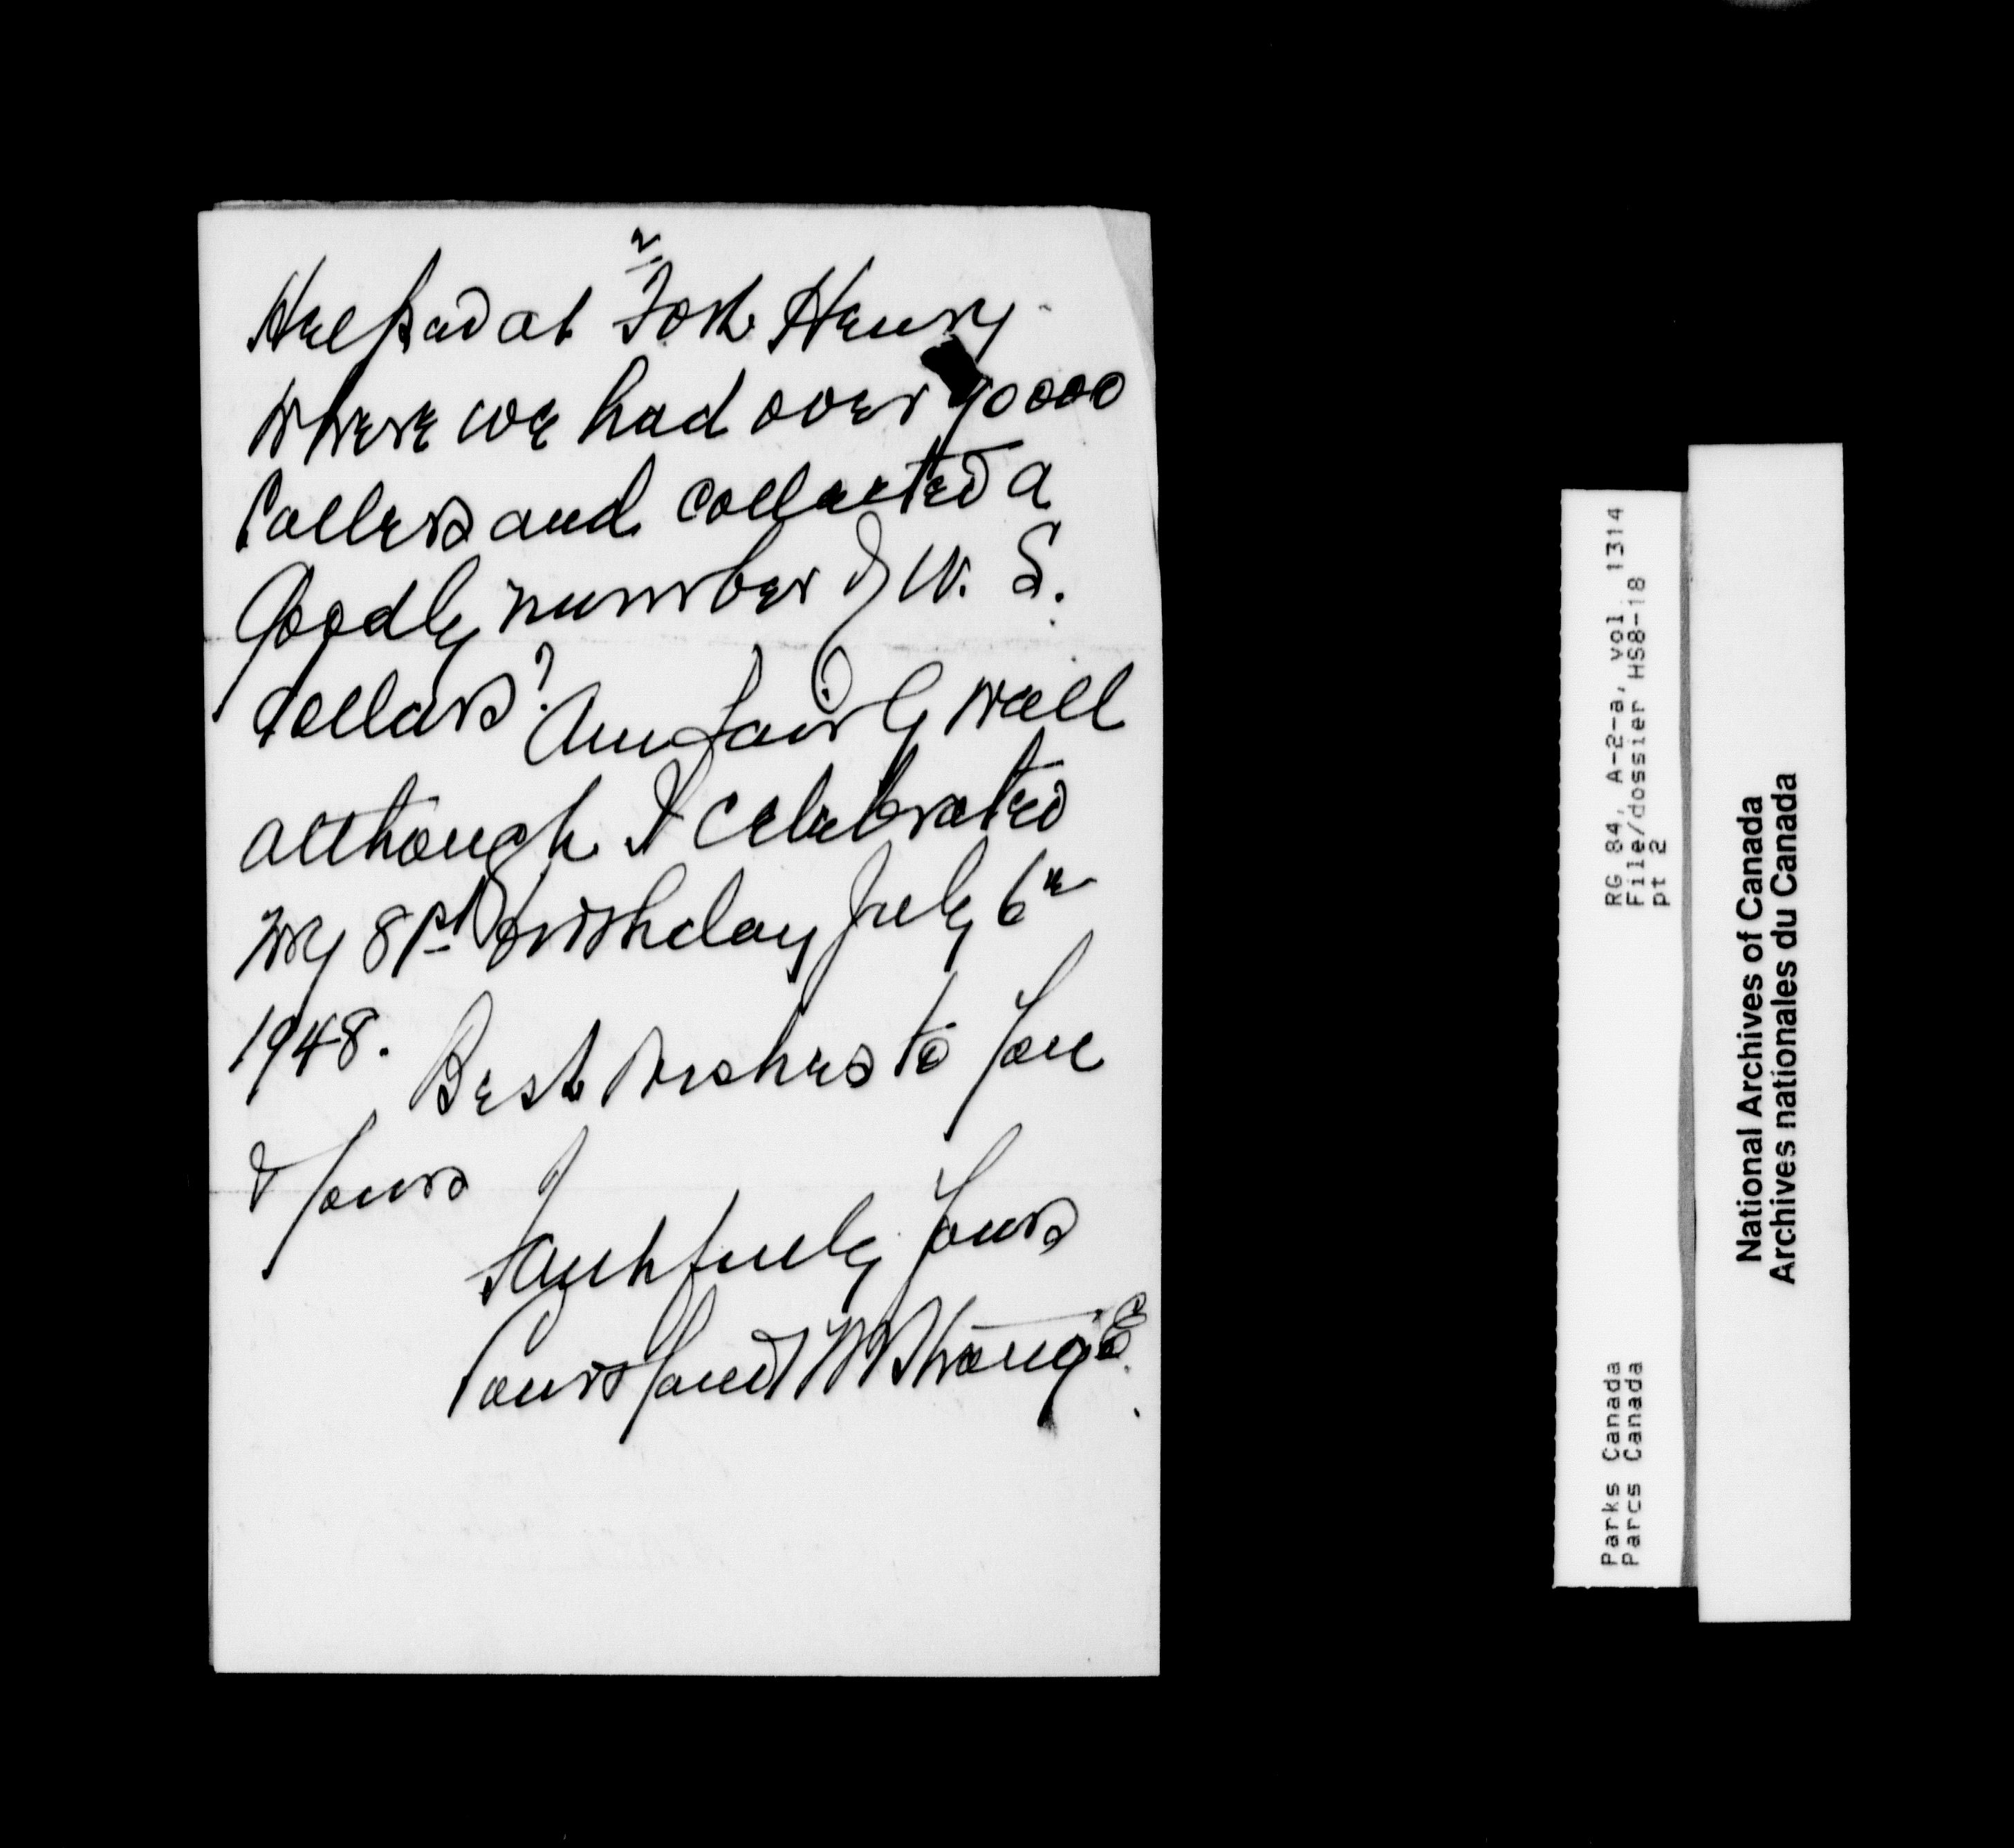 2
Helped at Fort Henry
where we had over 90000
Callers and collected a
Goodly number of U. S.
dollars? Am fairly well
although I celebrated
my 81st birthday July 6th
1948. Best wishes to you
& yours
Faithfully yours
Courtlandt Strange
RG 84, A-2-a, vol. 1314
File/dossier HS8-18
pt 2
Parks Canada
Parcs Canada
National Archives of Canada
Archives nationales du Canada